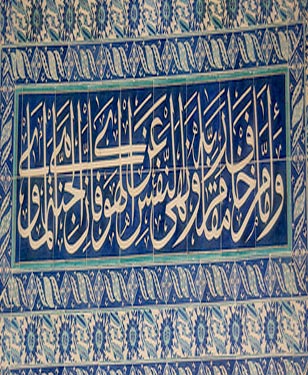 وأما من خاف مقام ربه ونهى النفس عن الهوى فإن الجنة هي المأوى